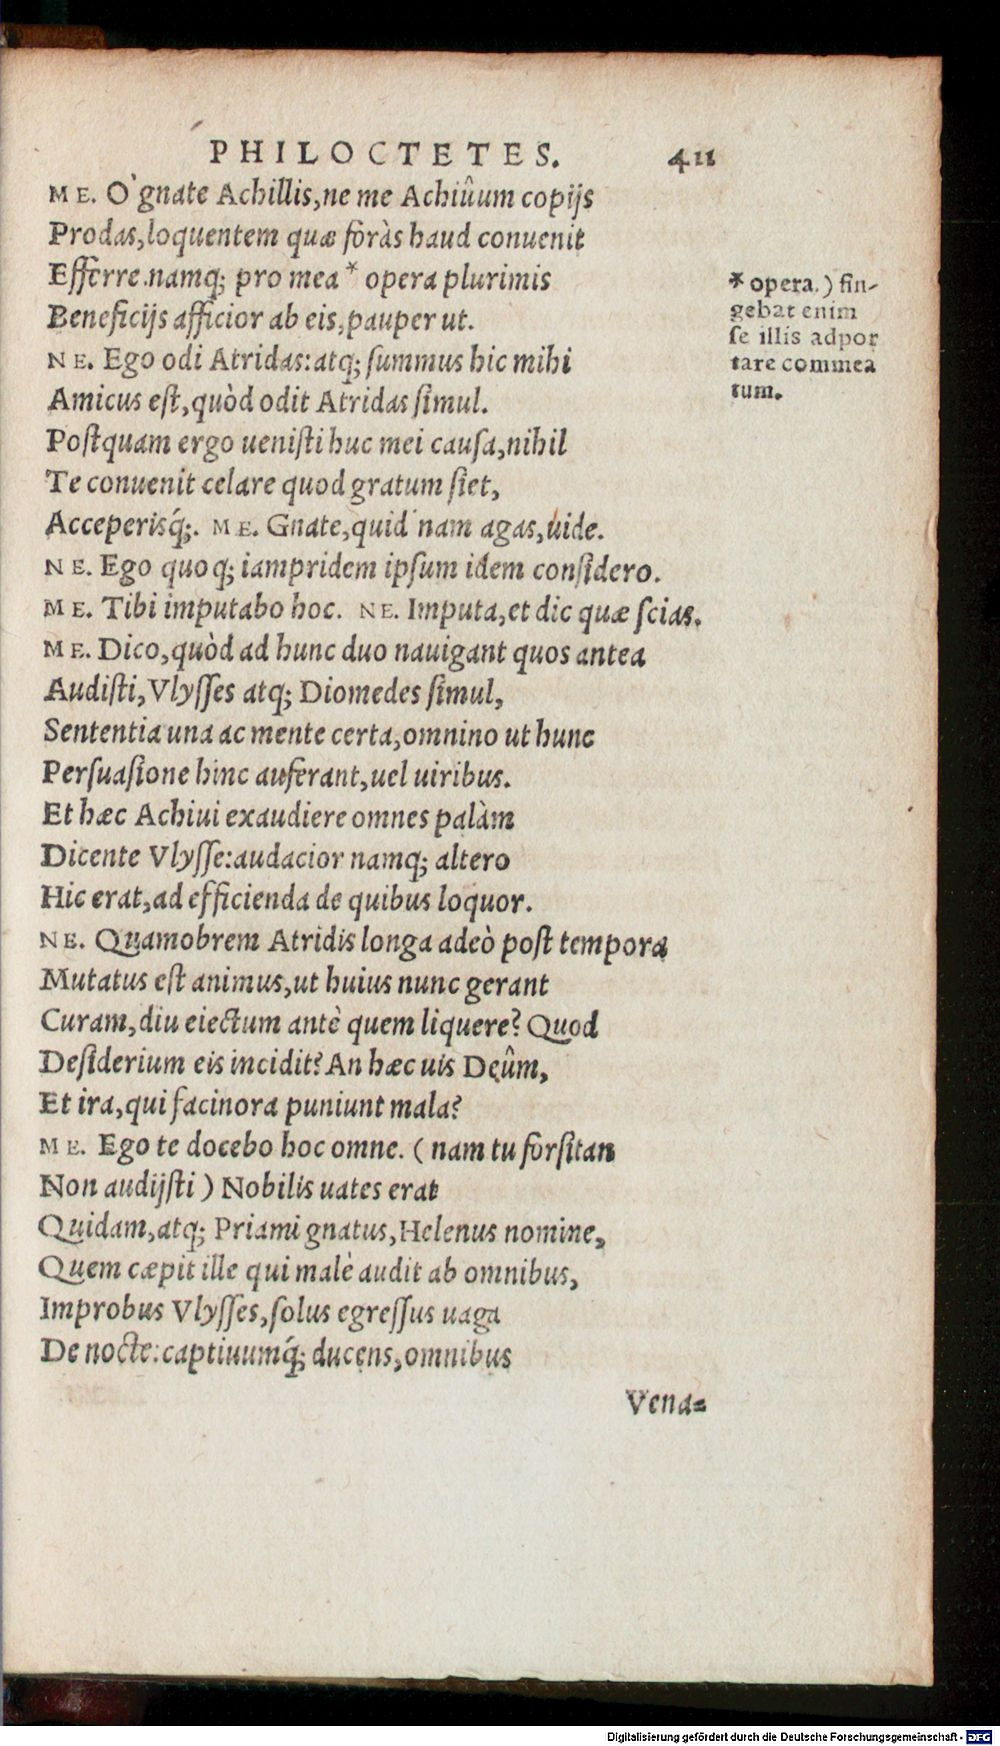 PHILOCTETES. 411
ME. O' gnate Achillis, ne me Achiûum copijs
Prodas, loquentem quæ foràs haud conuenit
Efferre. namq; pro mea * opera plurimis
Beneficijs afficior ab eis, pauper ut.
NE. Ego odi Atridas: atq; ſummus hic mihi
Amicus eſt, quòd odit Atridas ſimul.
Poſtquam ergo ueniſti huc mei cauſa, nihil
Te conuenit celare quod gratum ſiet,
Acceperisq́;. ME. Gnate, quid nam agas, uide.
NE. Ego quoq; iampridem ipſum idem conſidero.
ME. Tibi imputabo hoc. NE. Imputa, et dic quæ ſcias.
ME. Dico, quòd ad hunc duo nauigant quos antea
Audiſti, Vlyſſes atq; Diomedes ſimul,
Sententia una ac mente certa, omnino ut hunc
Perſuaſione hinc auferant, uel uiribus.
Et hæc Achiui exaudiere omnes palàm
Dicente Vlyſſe: audacior namq; altero
Hic erat, ad efficienda de quibus loquor.
NE. Quamobrem Atridis longa adeò poſt tempora
Mutatus eſt animus, ut huius nunc gerant
Curam, diu eiectum antè quem liquere? Quod
Deſiderium eis incidit? An hæc uis Deûm,
Et ira, qui facinora puniunt mala?
ME. Ego te docebo hoc omne. (nam tu forſitan
Non audijſti) Nobilis uates erat
Quidam, atq; Priami gnatus, Helenus nomine,
Quem cæpit ille qui malè audit ab omnibus,
Improbus Vlyſſes, ſolus egreſſus uaga
De nocte: captiuumq́; ducens, omnibus
Vena=
* opera.) fin-
gebat enim
ſe illis adpor
tare commea
tum.
Digitalisierung gefördert durch die Deutsche Forschungsgemeinschaft - DFG